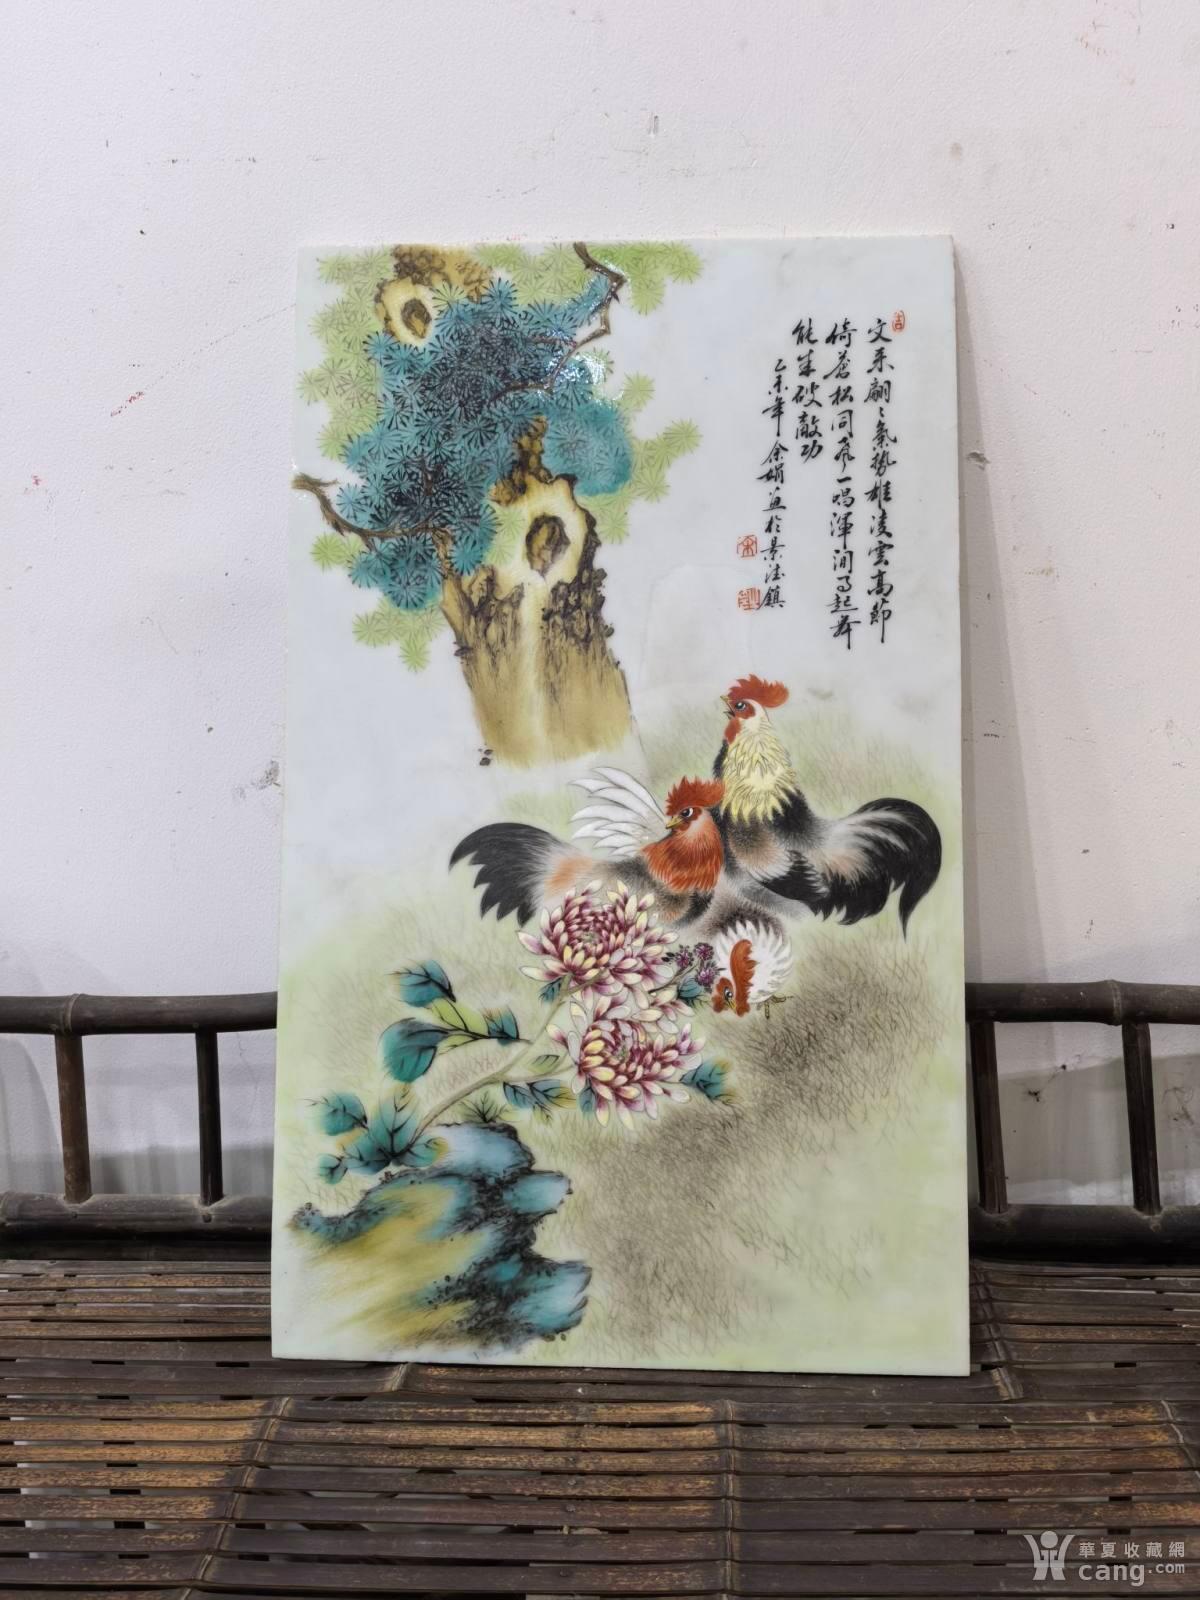 吉
文采翩〻氣勢雄凌雲高節
倚蒼松同聲一唱渾閒事起舞
能成破敵功
乙未年 余娟畫於景德鎮
余
華夏收藏網
cang.com